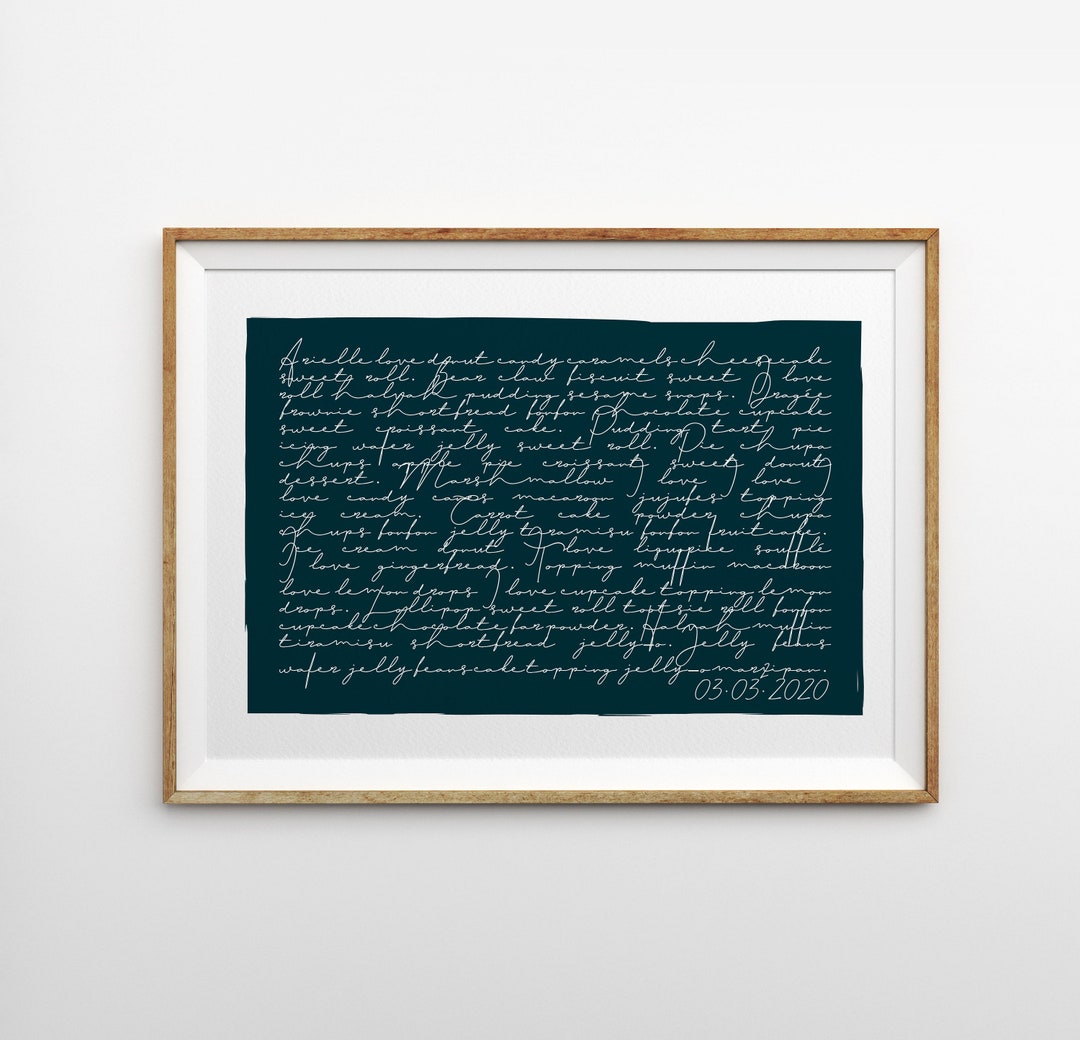 Arielle love donut candy caramels cheesecake
sweet roll. Bear claw biscuit sweet I love
roll halvah pudding sesame snaps. Dragée
brownie shortbread bonbon chocolate cupcake
sweet croissant cake. Pudding tart pie
icing wafer jelly sweet roll. Pie chupa
chups apple pie croissant sweet donut
dessert. Marshmallow I love I love I
love candy canes macaroon jujubes topping
ice cream. Carrot cake powder chupa
chups bonbon jelly tiramisu bonbon fruitcake.
Ice cream donut I love liquorice soufflé
I love gingerbread. Topping muffin macaroon
love lemon drops I love cupcake topping lemon
drops. Lollipop sweet roll tootsie roll bonbon
cupcake chocolate bar powder. Halvah muffin
tiramisu shortbread jelly-o. Jelly beans
wafer jelly beans cake topping jelly-o marzipan.
03·03·2020